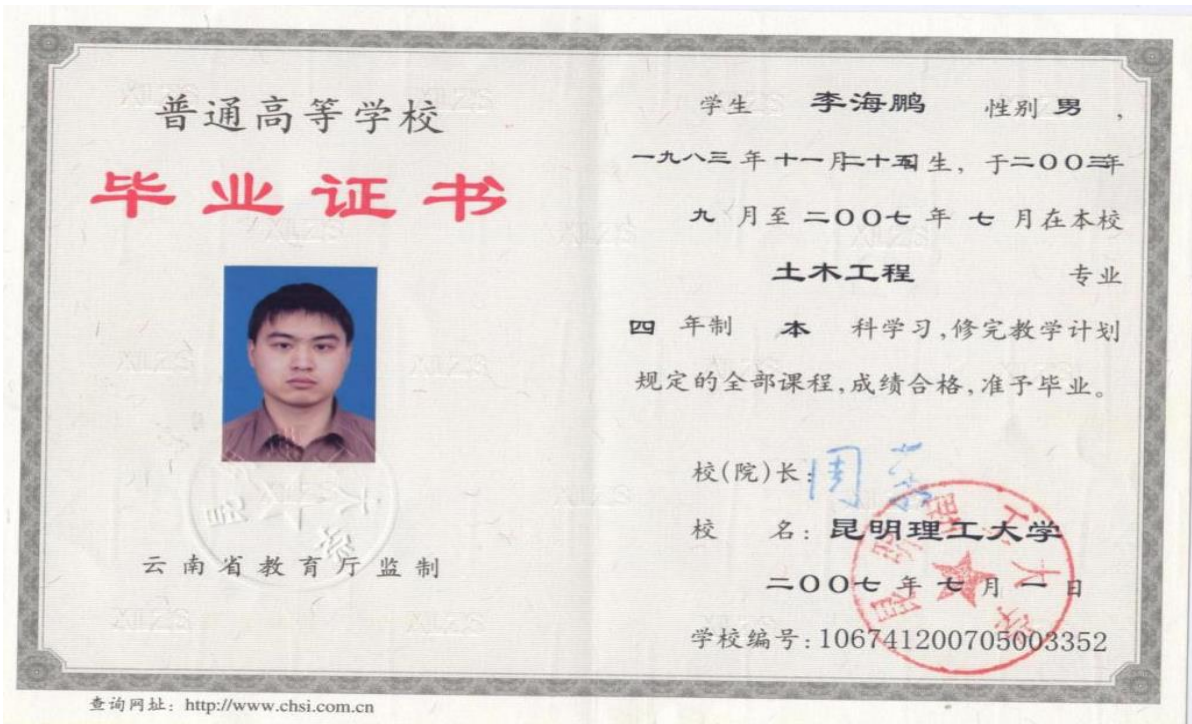 普通高等学校
毕业证书
云南省教育厅监制
学生 李海鹏 性别 男,
一九八三年十一月二十五日生, 于二〇〇三年
九 月至 二〇〇七 年 七 月在本校
土木工程 专业
四 年制 本 科学习,修完教学计划
规定的全部课程,成绩合格,准予毕业。
校(院)长:
校 名: 昆明理工大学
二〇〇七 年 七 月 一 日
学校编号:106741200705003352
昆明理工大学
查询网址: http://www.chsi.com.cn